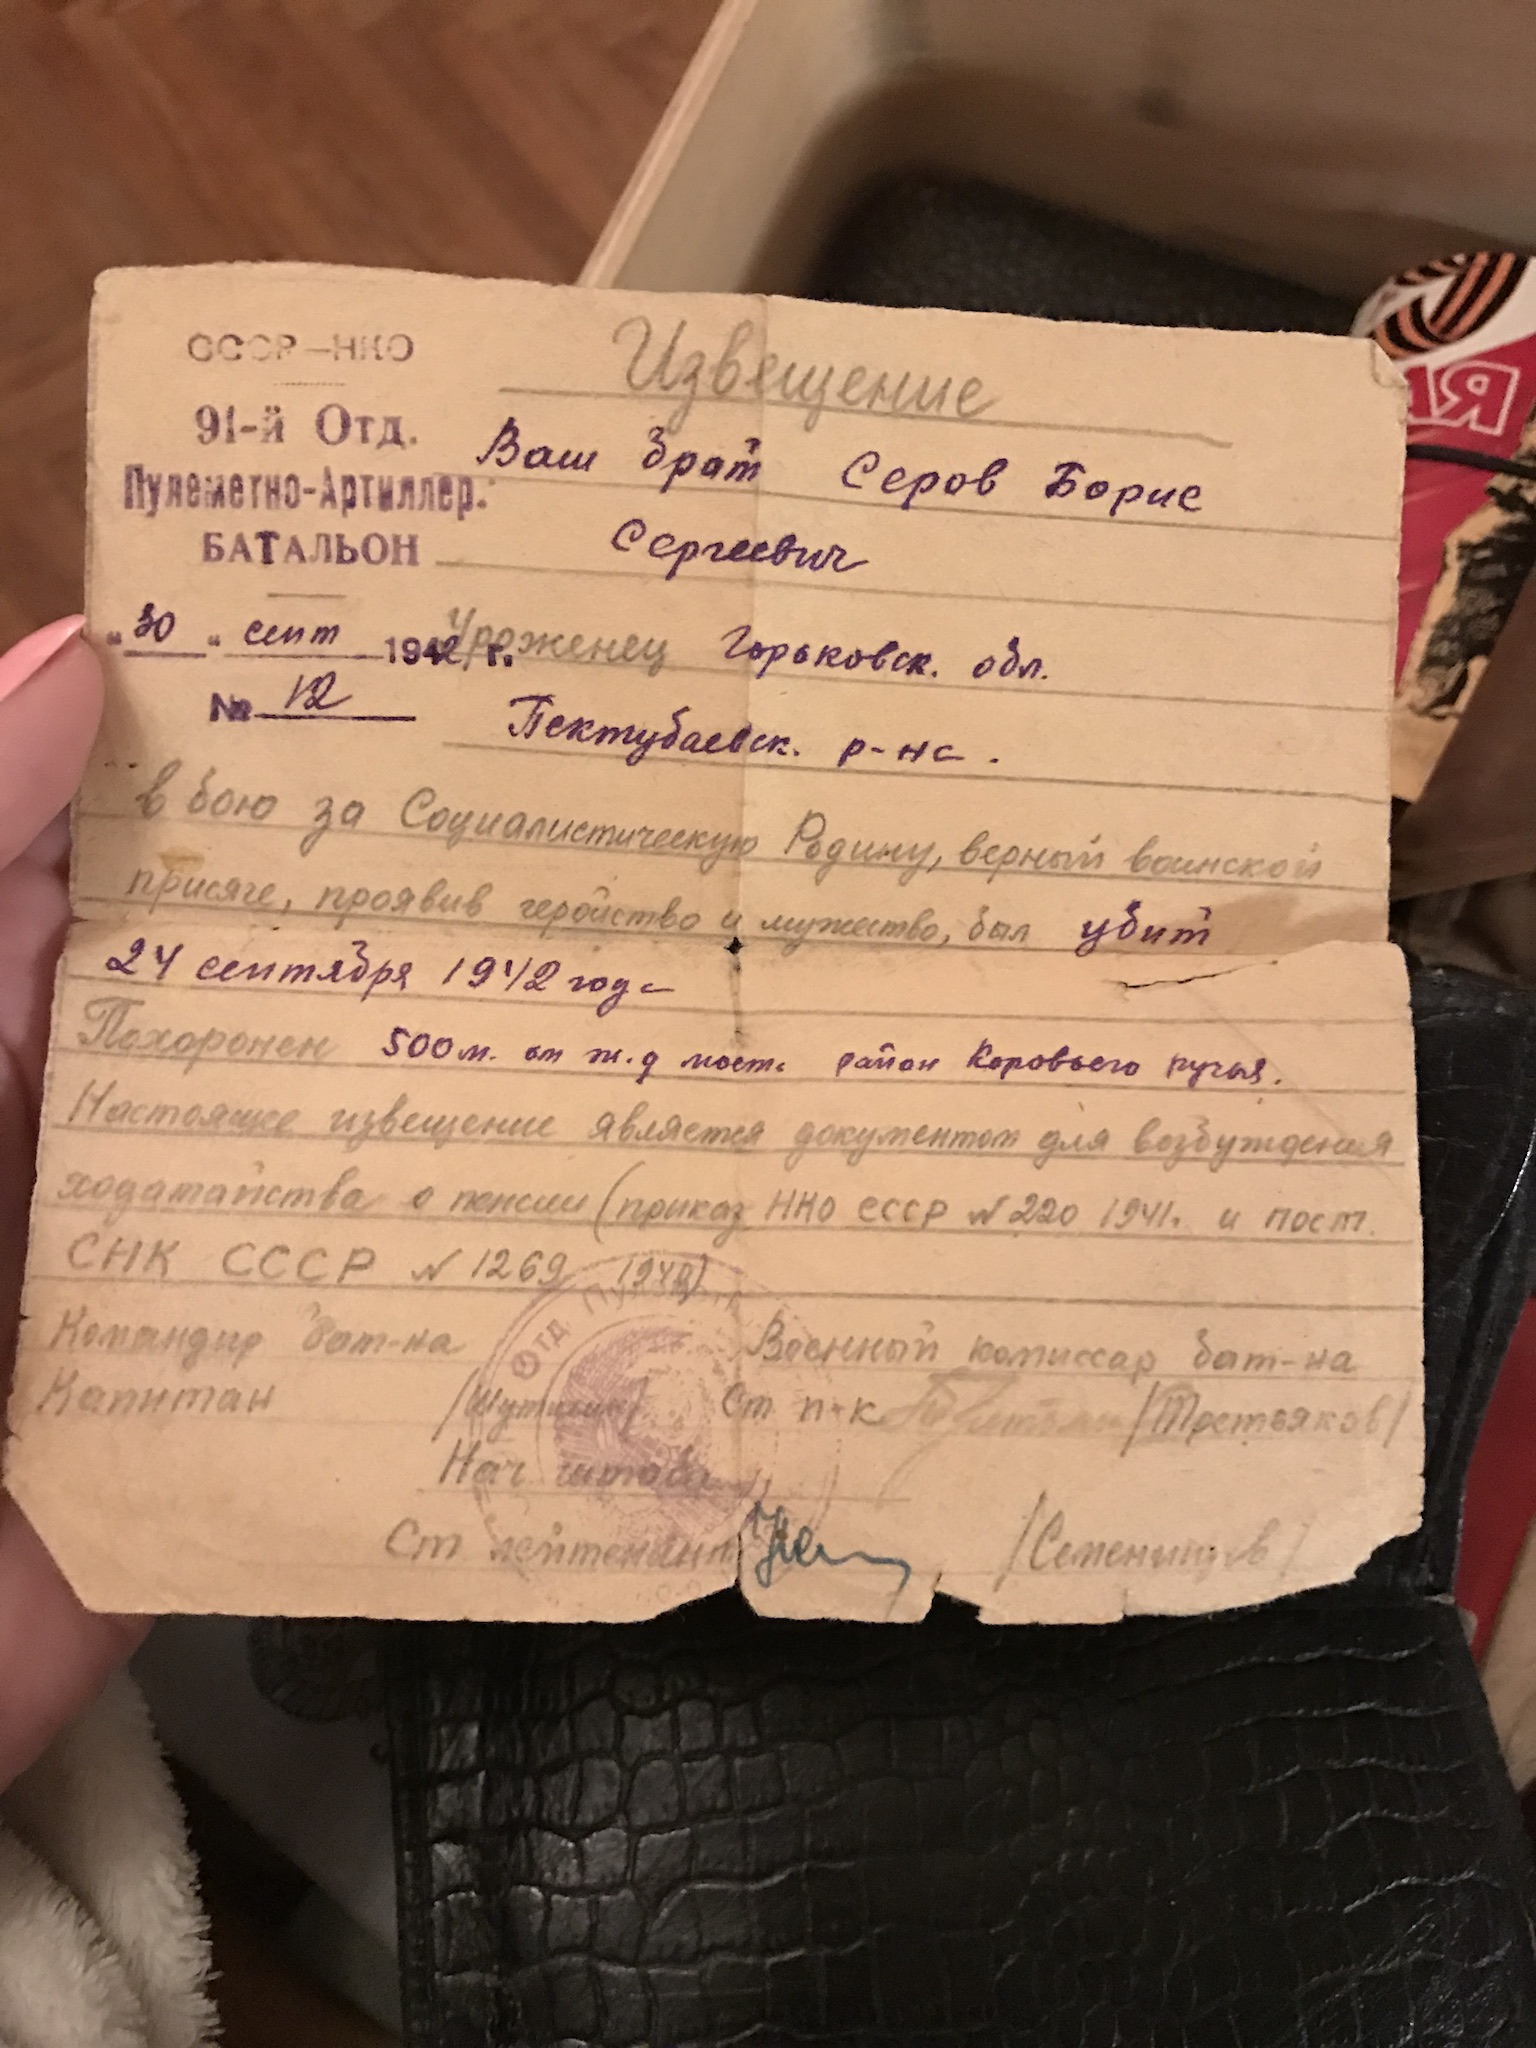 СССР-НКО
91-й Отд.
Пулеметно-Артиллер.
БАТАЛЬОН
"30" сент 1942 г.
№ 12
Извещение
Ваш брат Серов Борис
Сергеевич
Уроженец Горьковск. обл.
Пектубаевск. р-на.
в бою за Социалистическую Родину, верный воинской
присяге, проявив геройство и мужество, был убит
24 сентября 1942 года
Похоронен 500 м. от ж.д моста район Коровьего ручья.
Настоящее извещение является документом для возбуждения
ходатайства о пенсии (приказ НКО СССР № 220 1941г. и пост.
СНК СССР № 1269
Командир бат-на
Капитан
Военный комиссар бат-на
Ст п-к /Третьяков/
Нач штаба
Ст лейтенант /Семенищев/
Отд Пул
ЯН